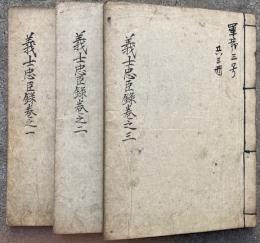 義士忠臣録巻之一
義士忠臣録巻之二
義士忠臣録巻之三
共三冊